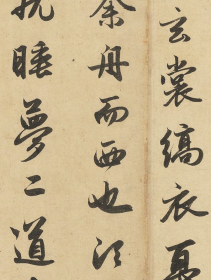 玄裳縞衣戛
余舟而西也須
就睡夢二道